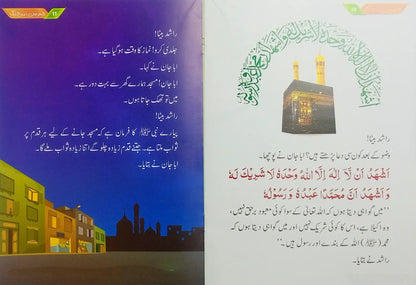 راشد بیٹا!
وضو کے بعد کون سی دعا پڑھتے ہیں؟ ابا جان نے پوچھا۔
اَشْهَدُ اَنْ لَّا اِلٰهَ اِلَّا اللهُ وَحْدَهٗ لَا شَرِيْكَ لَهٗ
وَ اَشْهَدُ اَنَّ مُحَمَّدًا عَبْدُهٗ وَ رَسُوْلُهٗ
”میں گواہی دیتا ہوں کہ اللہ تعالیٰ کے سوا کوئی معبود برحق نہیں،
وہ اکیلا ہے، اس کا کوئی شریک نہیں اور میں گواہی دیتا ہوں کہ
محمد (ﷺ) اللہ کے بندے اور رسول ہیں۔“
راشد نے بتایا۔
11
راشد بیٹا!
جلدی کرو! نماز کا وقت ہو گیا ہے۔
ابا جان نے کہا۔
ابا جان! مسجد ہمارے گھر سے بہت دور ہے۔
میں تو تھک جاتا ہوں۔
راشد بیٹا!
پیارے نبی ﷺ کا فرمان ہے کہ مسجد جانے کے لیے ہر قدم پر
ثواب ملتا ہے۔ جتنے قدم زیادہ چلو گے اتنا زیادہ ثواب ملے گا۔
ابا جان نے بتایا۔